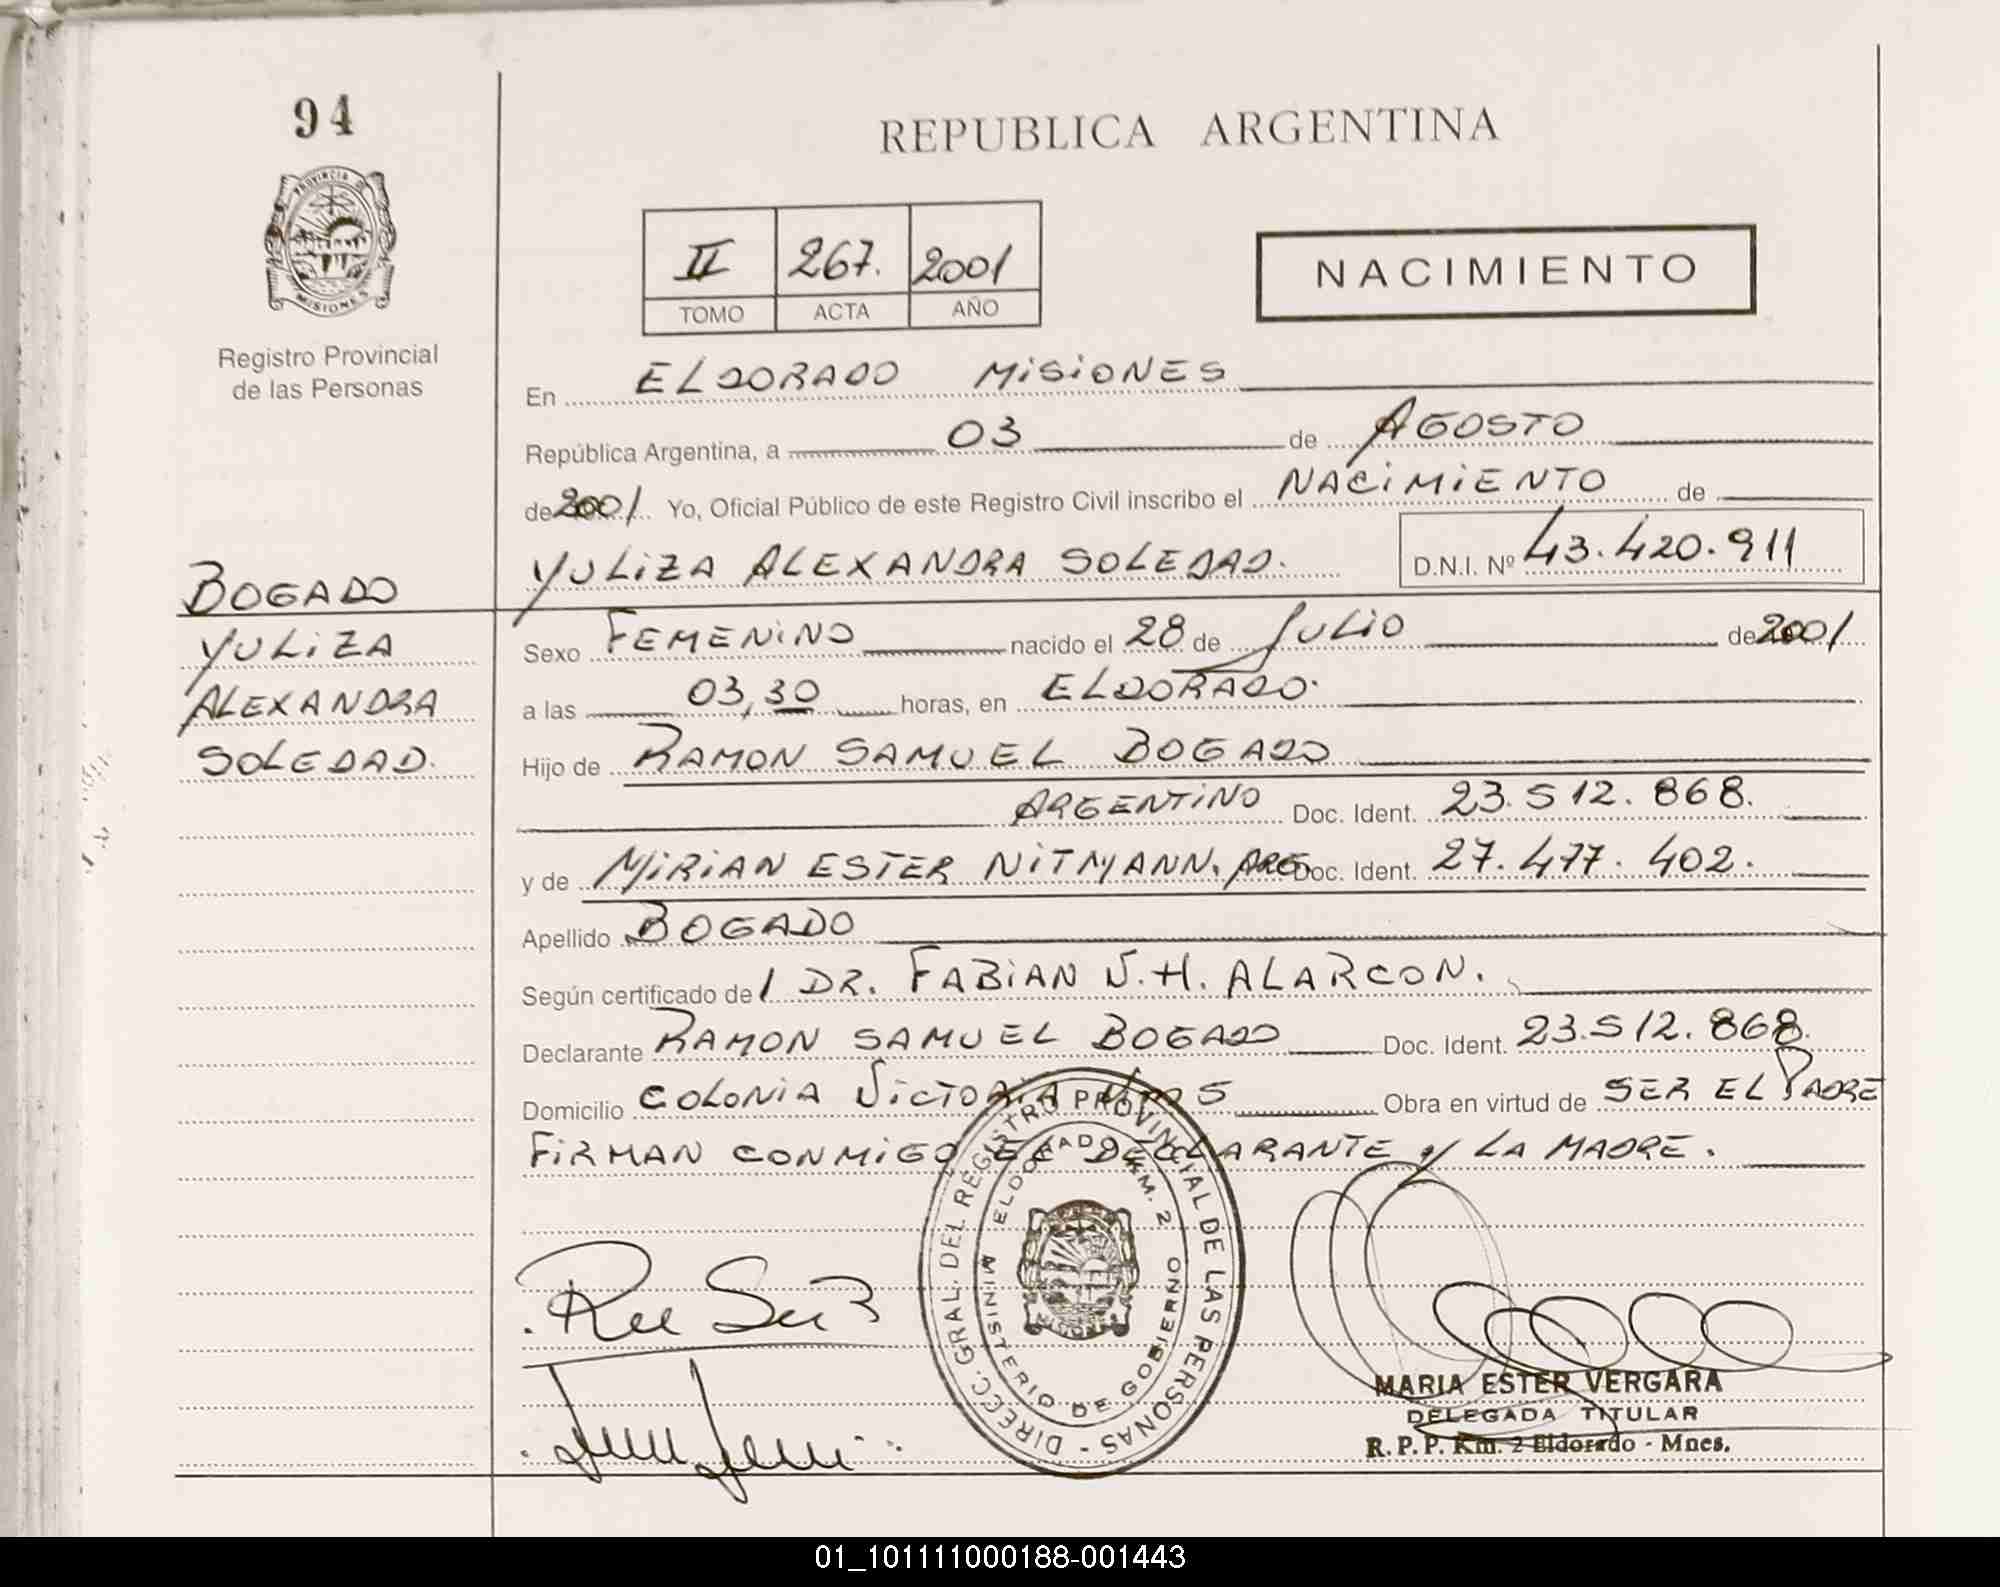 94
REPUBLICA ARGENTINA
PROVINCIA DE
MISIONES
II 267. 2001
TOMO ACTA AÑO
NACIMIENTO
Registro Provincial
de las Personas
En ELDORADO MISIONES
República Argentina, a 03 de AGOSTO
de 2001 Yo, Oficial Público de este Registro Civil inscribo el NACIMIENTO de
YULIZA ALEXANDRA SOLEDAD. D.N.I. Nº 43.420.911
BOGADO
YULIZA
ALEXANDRA
SOLEDAD.
Sexo FEMENINO nacido el 28 de JULIO de 2001
a las 03,30 horas, en ELDORADO.
Hijo de RAMON SAMUEL BOGADO
ARGENTINO Doc. Ident. 23.512.868.
y de MIRIAN ESTER NITMANN. ARG. Doc. Ident. 27.477.402.
Apellido BOGADO
Según certificado de/ DR. FABIAN V.H. ALARCON.
Declarante RAMON SAMUEL BOGADO Doc. Ident. 23.512.868.
Domicilio COLONIA VICTORIA Obra en virtud de SER EL PADRE
FIRMAN CONMIGO EL DECLARANTE y LA MADRE.
DIRECC. GRAL. DEL REGISTRO PROVINCIAL DE LAS PERSONAS -
ELDORADO KM. 2
MINISTERIO DE GOBIERNO
MARIA ESTER VERGARA
DELEGADA TITULAR
R.P.P. Km. 2 Eldorado - Mnes.
01_101111000188-001443